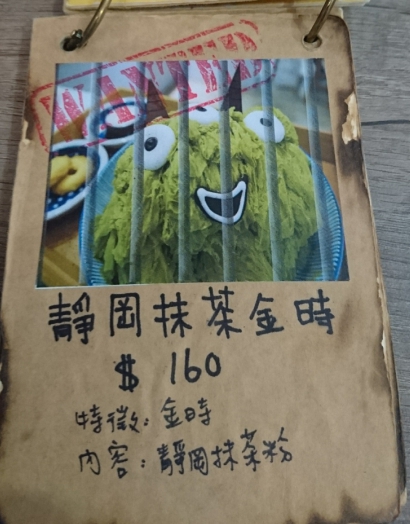 WANTED
靜岡抹茶金時
$ 160
特徵：金時
內容：靜岡抹茶粉